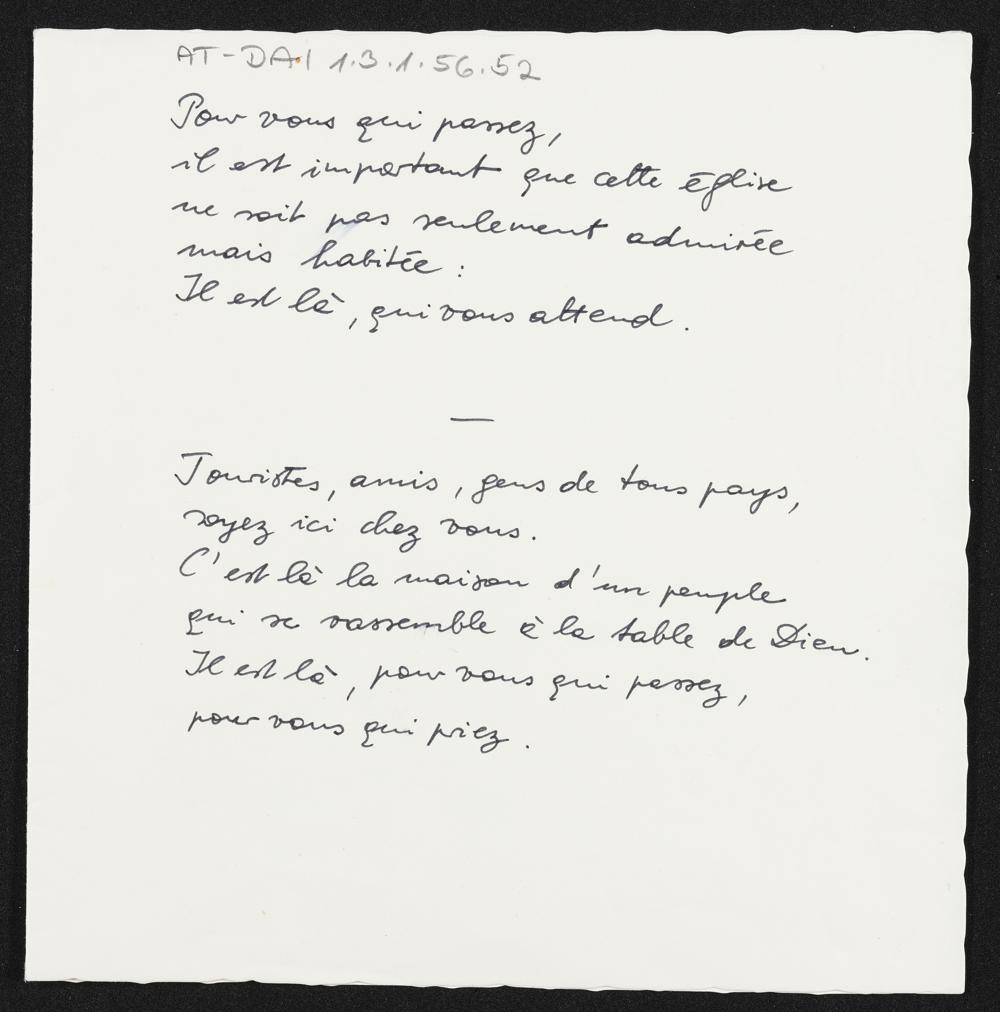 AT-DAI 1.3.1.56.52
Pour vous qui passez,
il est important que cette église
ne soit pas seulement admirée
mais habitée :
Il est là, qui vous attend.
—
Touristes, amis, gens de tous pays,
soyez ici chez vous.
C'est là la maison d'un peuple
qui se rassemble à la table de Dieu.
Il est là, pour vous qui passez,
pour vous qui priez.